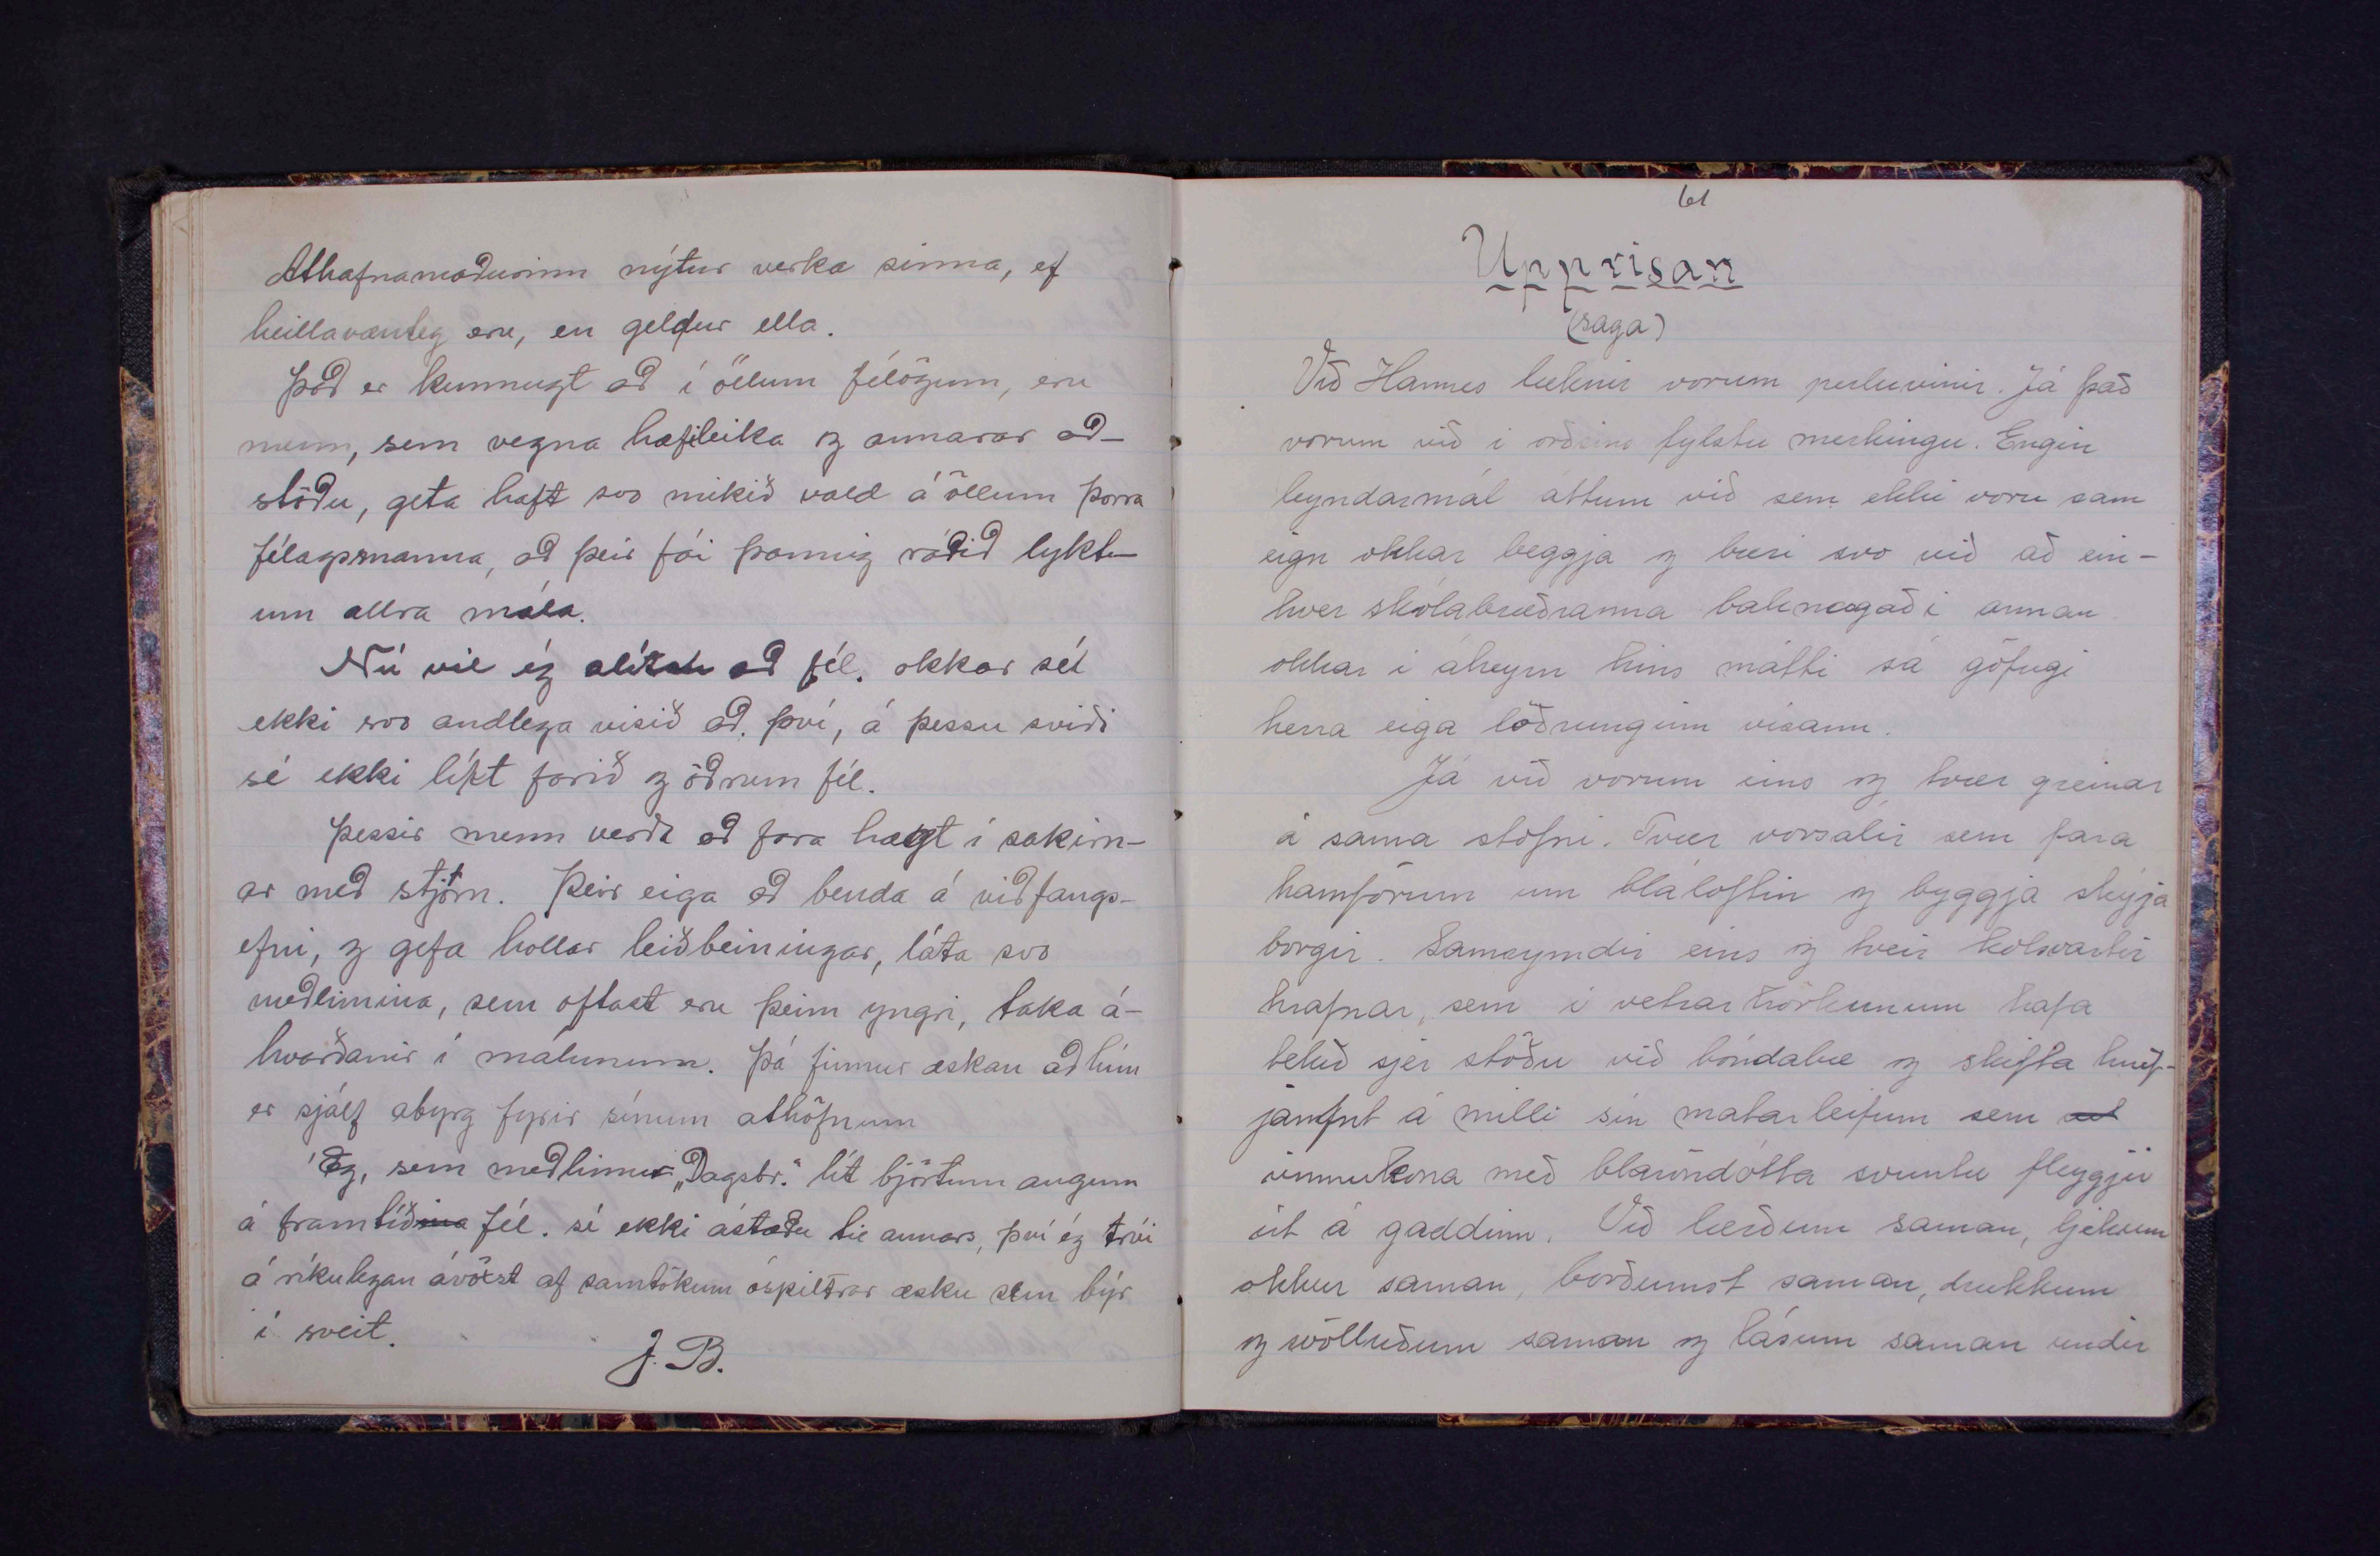 Athafnamaðurinn nýtur verka sinna, ef
heillavænleg eru, en geldur ella.
Það er kunnugt að í öllum félögum, eru
menn, sem vegna hæfileika og annarar að-
stöðu, geta haft svo mikið vald á öllum þorra
félagsmanna, að þeir fái þannig ráðið lykt-
um allra mála.
Nú vil ég álíta að fél. okkar sél
ekki svo andlega visið að því, á þessu sviði
sé ekki líkt farið og öðrum fél.
Þessir menn verða að fara hægt í sakirn-
ar með stjórn. Þeir eiga að benda á viðfangs-
efni, og gefa hollar leiðbeiningar, láta svo
meðlimina, sem oftast eru þeim yngri, taka á-
kvarðanir í málunum. Þá finnur æskan að hún
er sjálf abyrg fyrir sínum athöfnum
Ég, sem meðlimur „Dagsbr." lít björtum augum
á framtíð fél. sé ekki ástæðu til annars, því ég trúi
á ríkulegan ávöxt af samtökum óspiltrar æsku sem býr
í sveit.
J. B.
61
Upprisan
(saga)
Við Hannes læknir vorum perluvinir. Já það
vorum við í orðsins fylstu merkingu. Engin
leyndarmál áttum við sem ekki voru sam
eign okkar beggja og bæri svo við að ein-
hver skólabræðranna baknagaði annan
okkar í áheyrn hins mátti sá göfugi
herra eiga löðrunginn vísann.
Já við vorum eins og tvær greinar
á sama stofni. Tvær vorsálir sem fara
hamförum um bláloftin og byggja skýja
borgir. Samrýmdir eins og tveir kolsvartir
hrafnar, sem í vetrarhörkunum hafa
tekið sjer stöðu við bóndabæ og skifta hníf-
jamfnt á milli sín matarleifum sem
vinnukona með bláröndótta svuntu fleyggir
út á gaddinn. Við lærðum saman, ljekum
okkur saman, borðumst saman, drukkum
og svölluðum saman og lásum saman undir